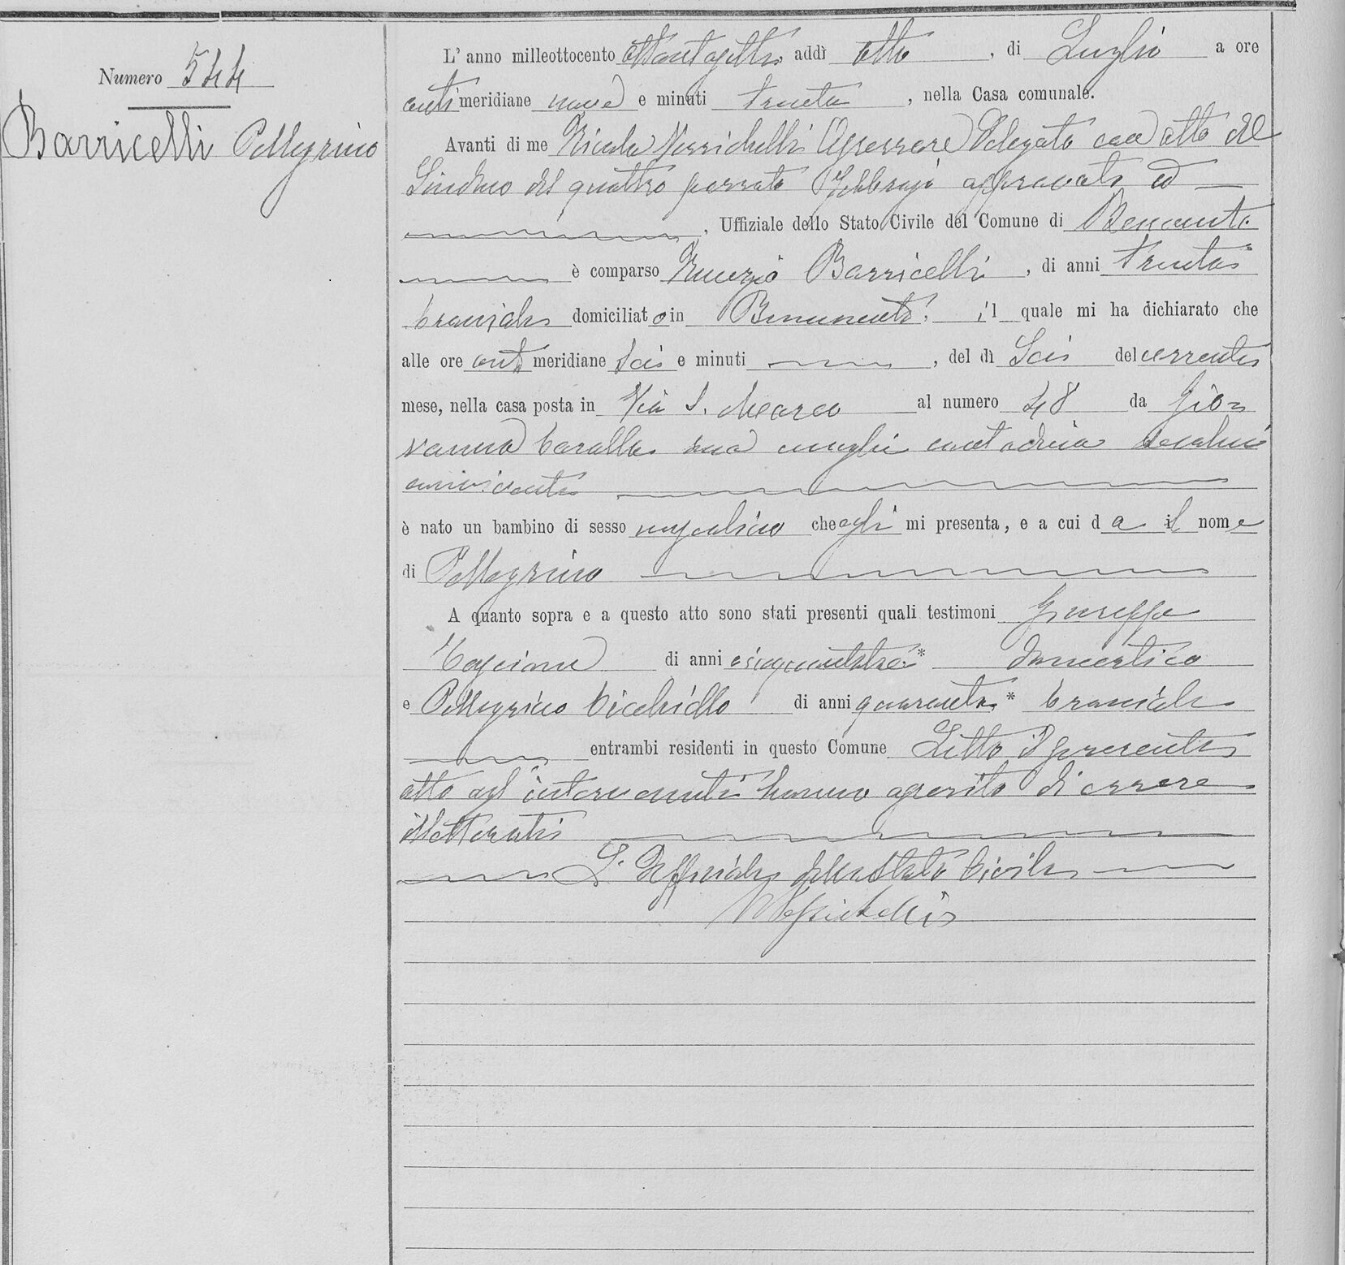 Numero 544
Barricelli Pellegrino
L'anno milleottocento addì otto, di Luglio a ore
anti meridiane nove e minuti trenta, nella Casa comunale.
Avanti di me Nicola Assessore Delegato con atto del
Sindaco del quattro passato Febbraio approvato ed
Uffiziale dello Stato Civile del Comune di Benevento
è comparso Barricelli, di anni trenta
domiciliato in Benevento, il quale mi ha dichiarato che
alle ore anti meridiane sei e minuti, del dì Sei del corrente
mese, nella casa posta in Via S. Marco al numero 48 da Gio=
vanna sua moglie contadina seco lui
convivente
è nato un bambino di sesso mascolino che egli mi presenta, e a cui dà il nome
di Pellegrino
A quanto sopra e a questo atto sono stati presenti quali testimoni Giuseppe
di anni domestico
e Pellegrino di anni quaranta
entrambi residenti in questo Comune Letto il presente
atto agl'intervenuti hanno asserito di essere
illetterati
L'Uffiziale dello Stato Civile